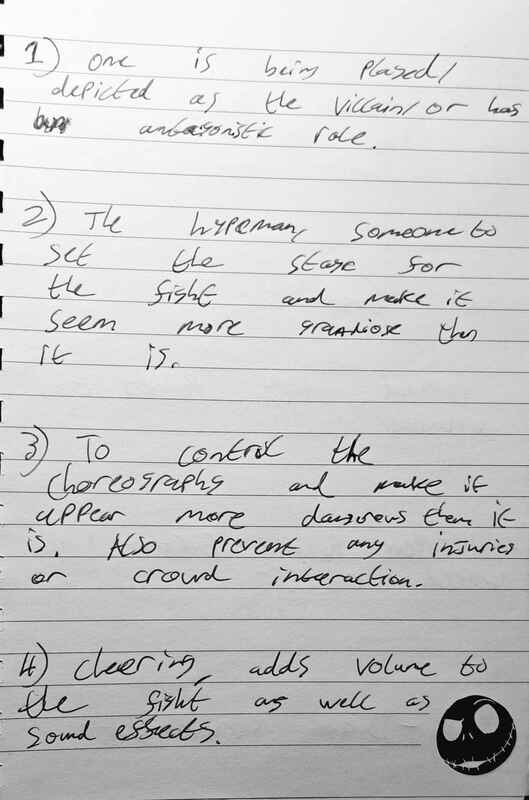 1) One is being played/
depicted as the villain/ or has
antagonistic role.
2) The hypeman, someone to
set the stage for
the fight and make it
seem more grandiose than
it is.
3) To control the
choreography and make it
appear more dangerous then it
is. Also prevent any injuries
or crowd interaction.
4) cheering, adds volume to
the fight as well as
sound effects.